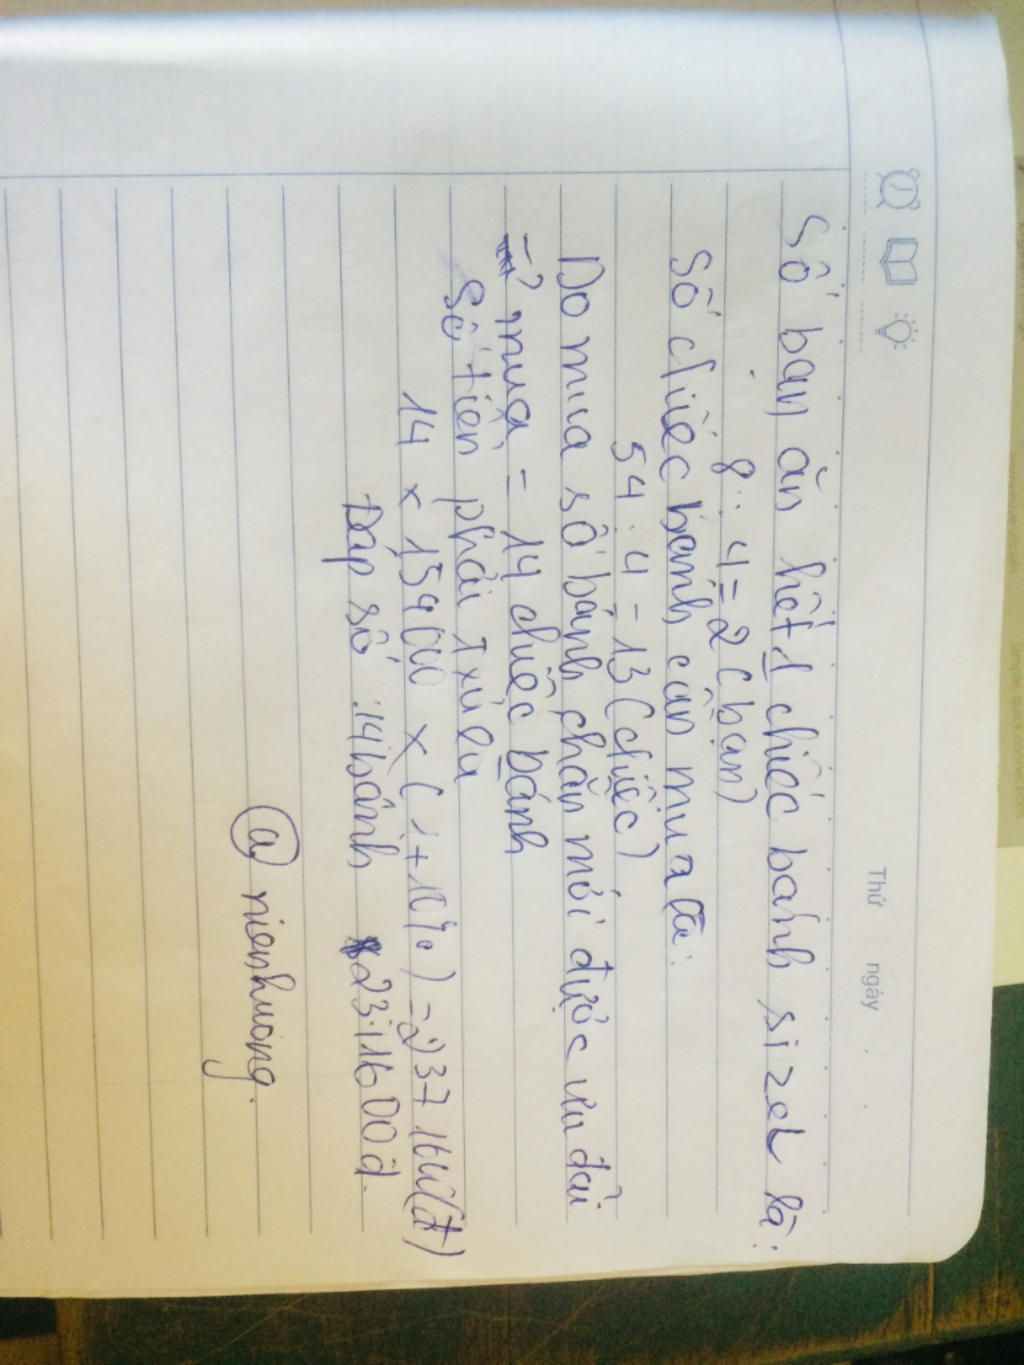 Thứ ngày
Số bạn ăn hết 1 chiếc bánh size L là:
8 : 4 = 2 (bạn)
Số chiếc bánh cần mua là:
54 : 4 = 13 (chiếc)
Do mua số bánh chẵn mới được ưu đãi
→ mua = 14 chiếc bánh
Số tiền phải
14 x 154000 x (1+10%) = 2371600(đ)
Đáp số : 14 bánh
@ nienhuong.